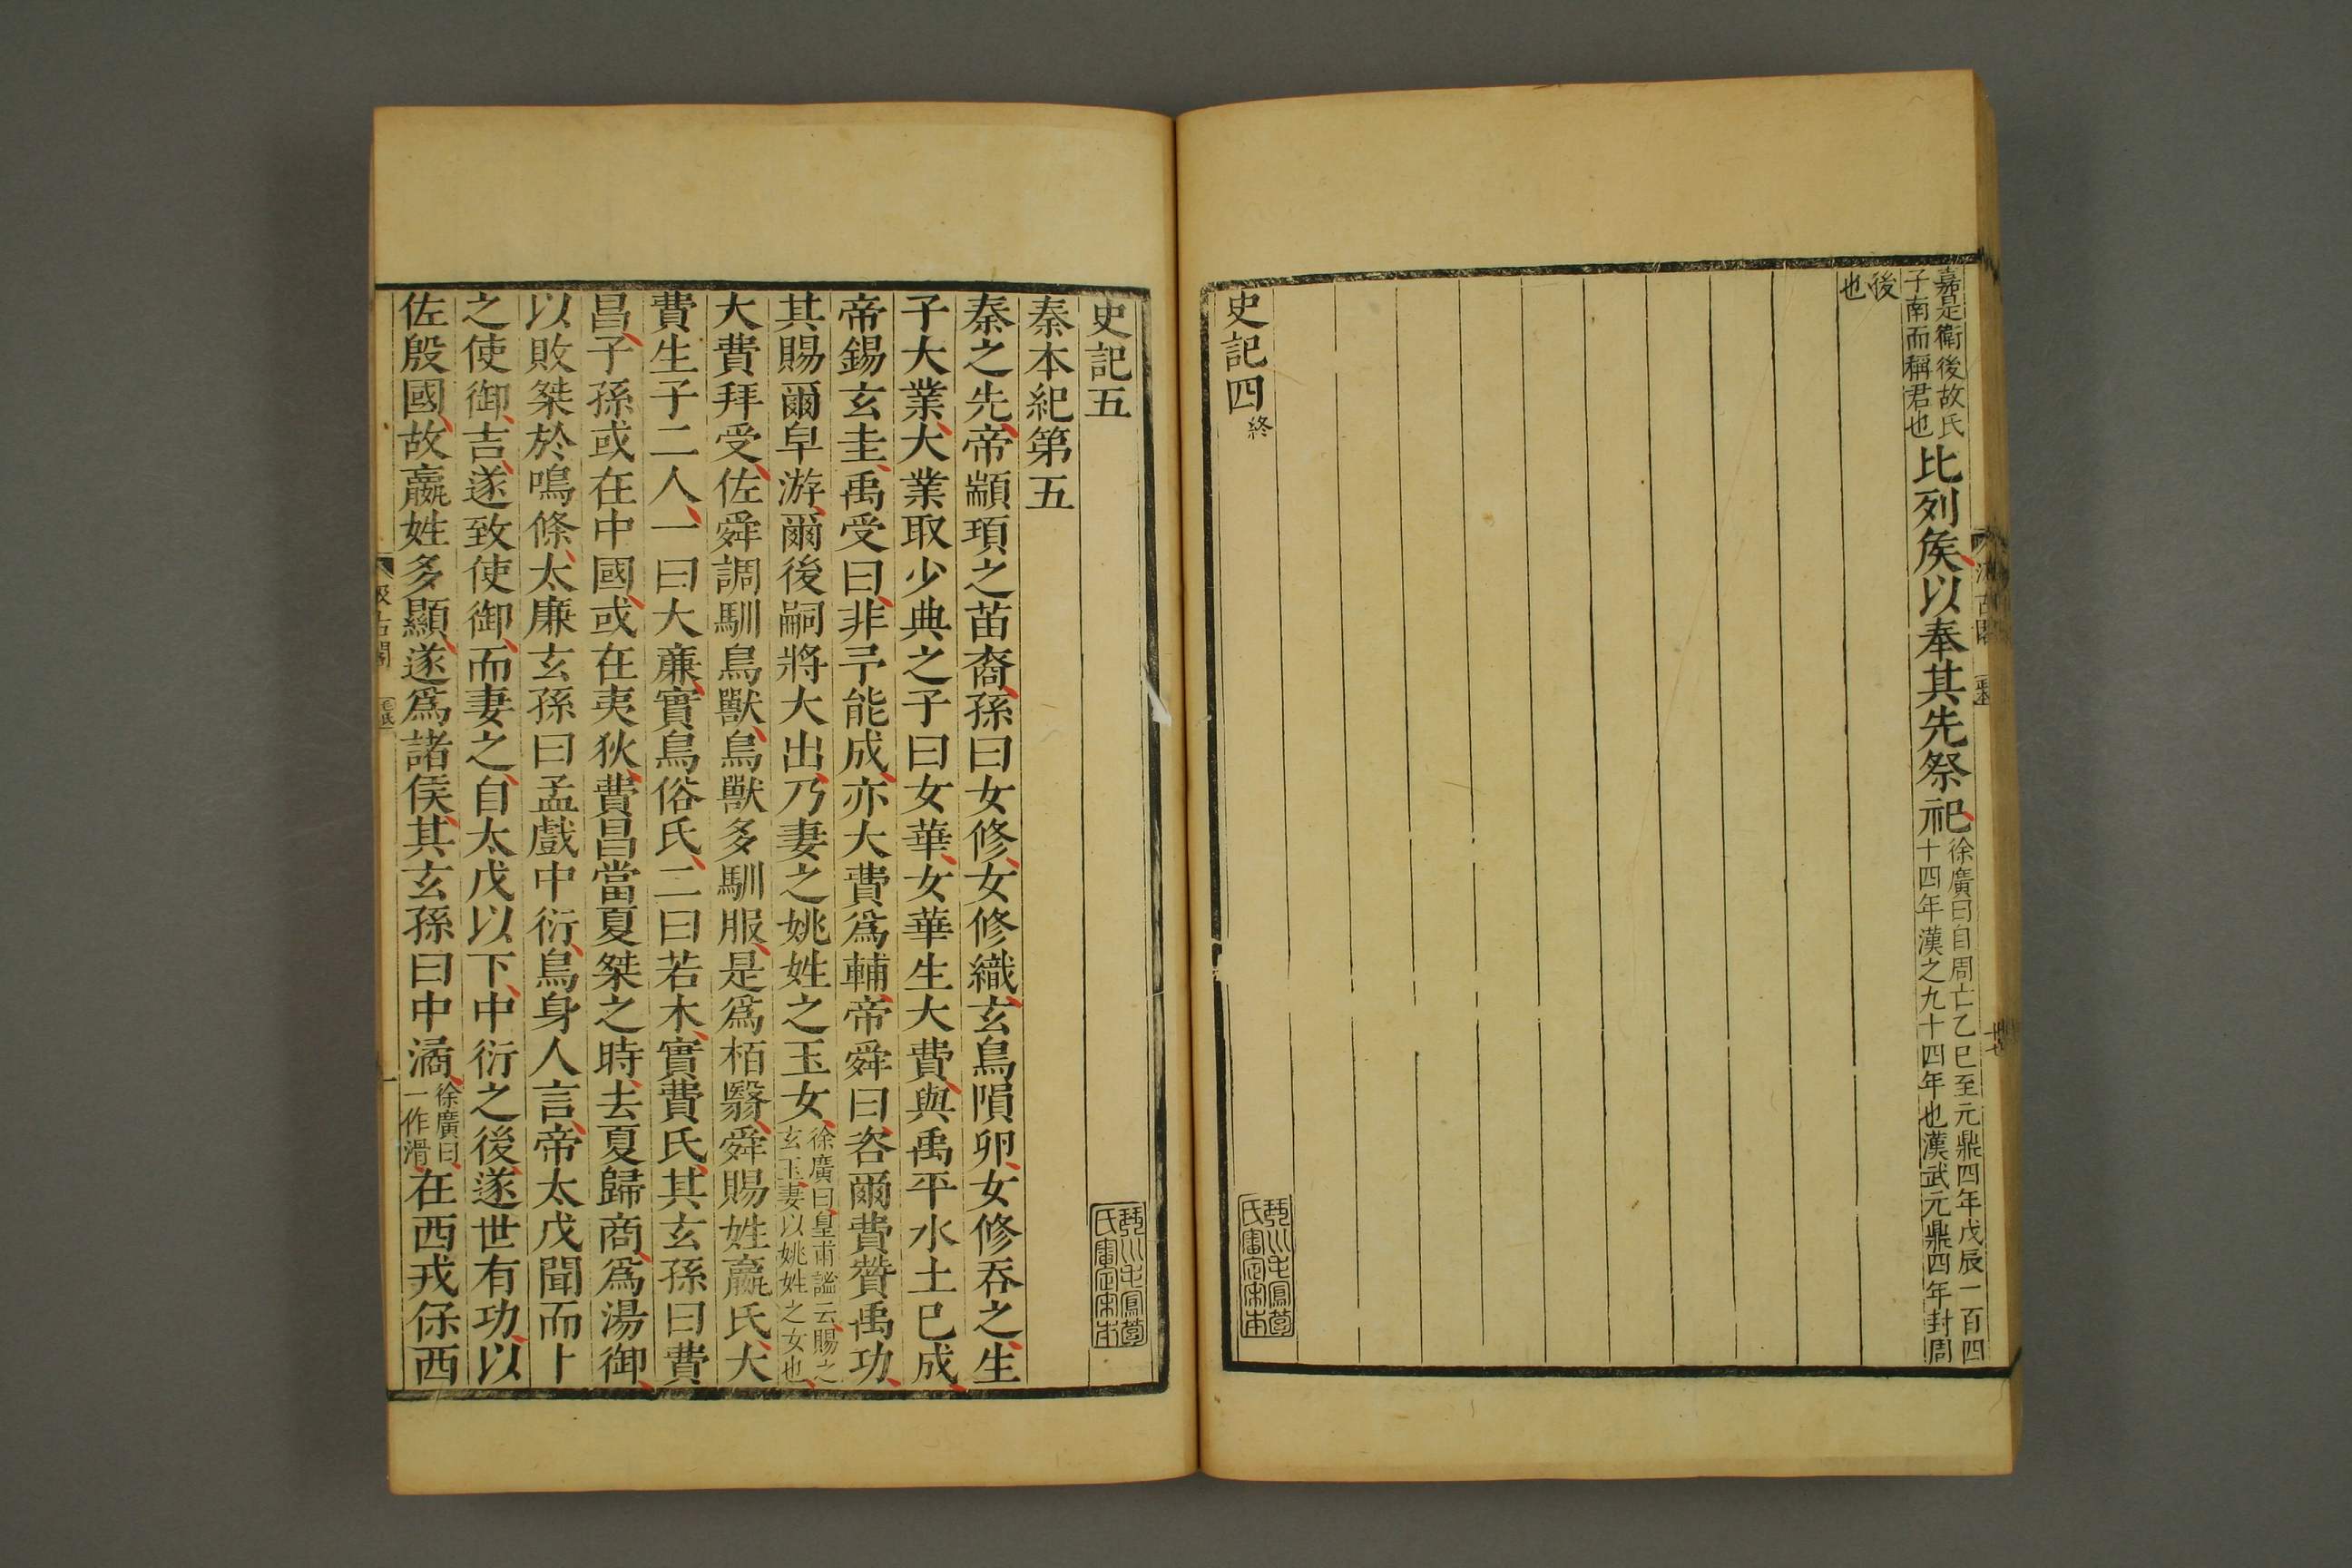 嘉是衛後故氏子南而稱君也比列矦以奉其先祭祀徐廣曰自周亡乙巳至元鼎四年戊辰一百四十四年漢之九十四年也漢武元鼎四年封周
後也
史記四終
琴川毛鳳苞氏審定宋本
史記五
琴川毛鳳苞氏審定宋本
秦本紀第五
秦之先帝顓頊之苗裔孫曰女修女修織玄鳥隕卵女修吞之生
子大業大業取少典之子曰女華女華生大費與禹平水土已成
帝錫玄圭禹受曰非予能成亦大費爲輔帝舜曰咨爾費贊禹功
其賜爾皁游爾後嗣將大出乃妻之姚姓之玉女徐廣曰皇甫謐云賜之玄玉妻以姚姓之女也
大費拜受佐舜調馴鳥獸鳥獸多馴服是爲栢翳舜賜姓嬴氏大
費生子二人一曰大廉實鳥俗氏二曰若木實費氏其玄孫曰費
昌子孫或在中國或在夷狄費昌當夏桀之時去夏歸商爲湯御
以敗桀於鳴條太廉玄孫曰孟戲中衍鳥身人言帝太戊聞而卜
之使御吉遂致使御而妻之自太戊以下中衍之後遂世有功以
佐殷國故嬴姓多顯遂爲諸侯其玄孫曰中潏徐廣曰一作滑在西戎保西
汲古閣
毛氏
一